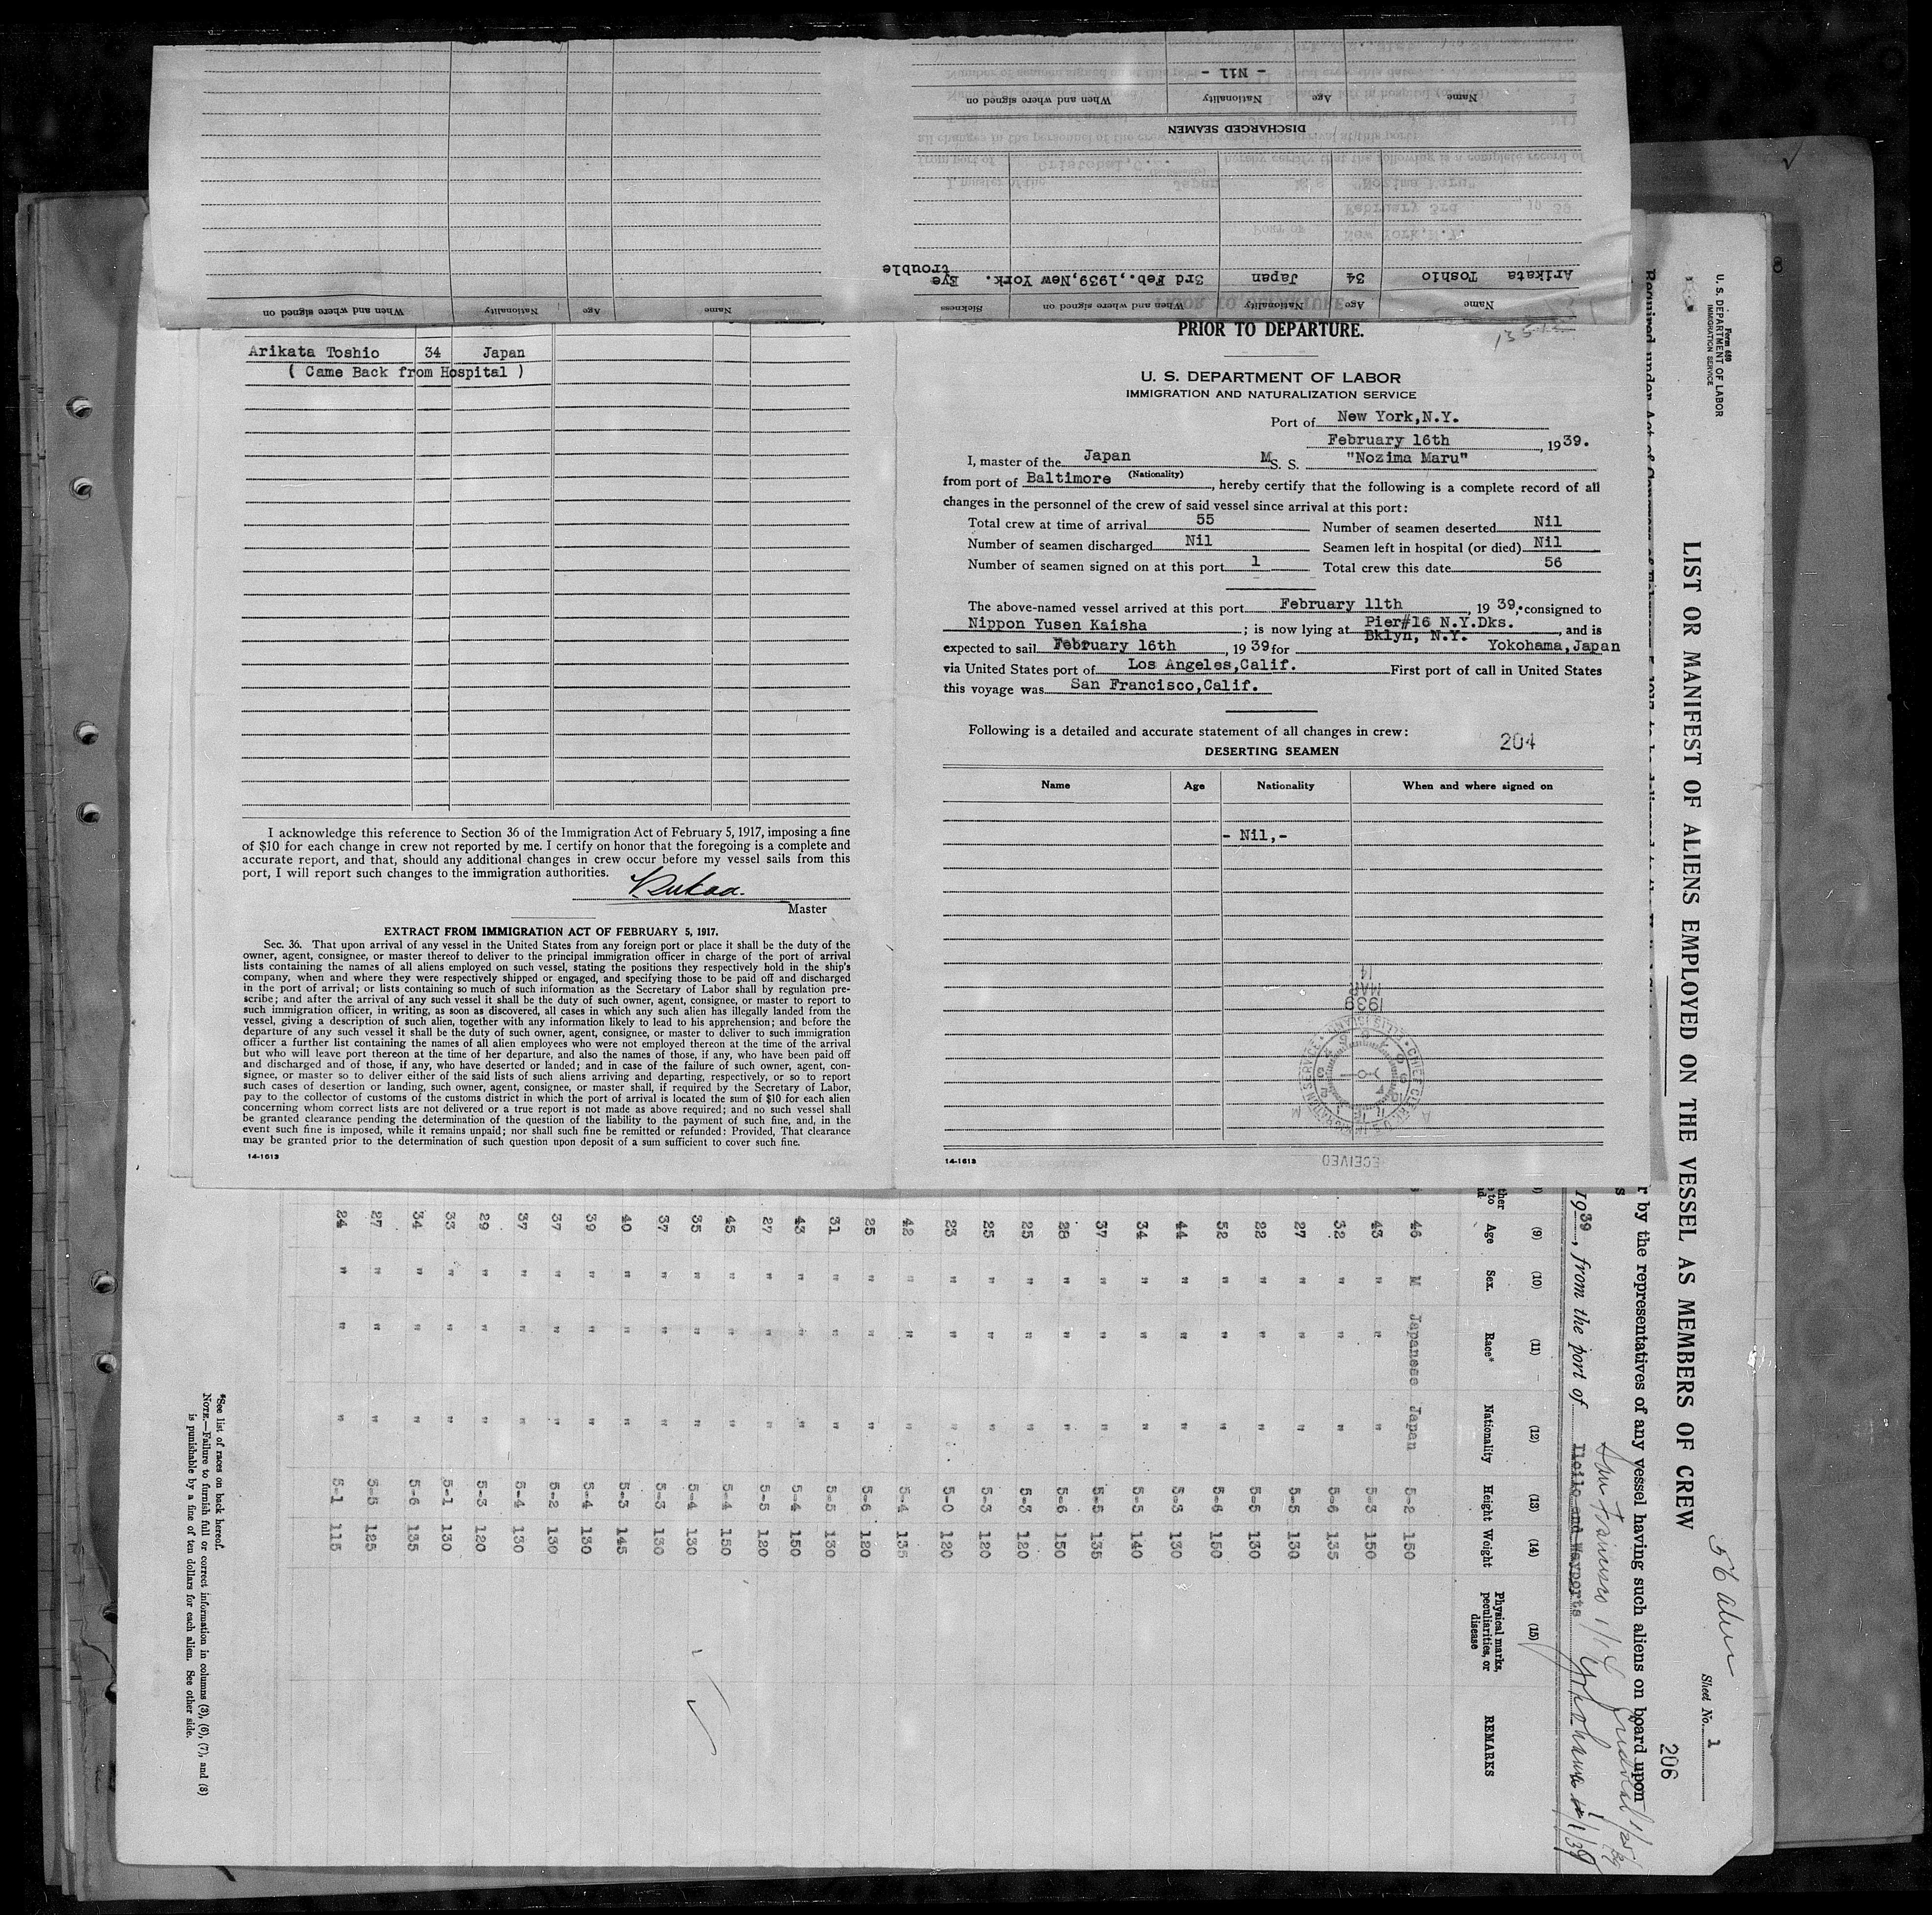 Name Age Nationality When and where signed on
- Nil -
DISCHARGED SEAMEN
Name Age Nationality When and where signed on Sickness
Arikata Toshio 34 Japan 3rd Feb.,1939,New York. Eye trouble
Name Age Nationality When and where signed on
Arikata Toshio 34 Japan
( Came Back from Hospital )
I acknowledge this reference to Section 36 of the Immigration Act of February 5, 1917, imposing a fine
of $10 for each change in crew not reported by me. I certify on honor that the foregoing is a complete and
accurate report, and that, should any additional changes in crew occur before my vessel sails from this
port, I will report such changes to the immigration authorities.
Master
EXTRACT FROM IMMIGRATION ACT OF FEBRUARY 5, 1917.
Sec. 36. That upon arrival of any vessel in the United States from any foreign port or place it shall be the duty of the
owner, agent, consignee, or master thereof to deliver to the principal immigration officer in charge of the port of arrival
lists containing the names of all aliens employed on such vessel, stating the positions they respectively hold in the ship's
company, when and where they were respectively shipped or engaged, and specifying those to be paid off and discharged
in the port of arrival; or lists containing so much of such information as the Secretary of Labor shall by regulation pre-
scribe; and after the arrival of any such vessel it shall be the duty of such owner, agent, consignee, or master to report to
such immigration officer, in writing, as soon as discovered, all cases in which any such alien has illegally landed from the
vessel, giving a description of such alien, together with any information likely to lead to his apprehension; and before the
departure of any such vessel it shall be the duty of such owner, agent, consignee, or master to deliver to such immigration
officer a further list containing the names of all alien employees who were not employed thereon at the time of the arrival
but who will leave port thereon at the time of her departure, and also the names of those, if any, who have been paid off
and discharged and of those, if any, who have deserted or landed; and in case of the failure of such owner, agent, con-
signee, or master so to deliver either of the said lists of such aliens arriving and departing, respectively, or so to report
such cases of desertion or landing, such owner, agent, consignee, or master shall, if required by the Secretary of Labor,
pay to the collector of customs of the customs district in which the port of arrival is located the sum of $10 for each alien
concerning whom correct lists are not delivered or a true report is not made as above required; and no such vessel shall
be granted clearance pending the determination of the question of the liability to the payment of such fine, and, in the
event such fine is imposed, while it remains unpaid; nor shall such fine be remitted or refunded: Provided, That clearance
may be granted prior to the determination of such question upon deposit of a sum sufficient to cover such fine.
14-1613
PRIOR TO DEPARTURE.
U. S. DEPARTMENT OF LABOR
IMMIGRATION AND NATURALIZATION SERVICE
Port of New York,N.Y.
February 16th, 1939.
I, master of the Japan M S. S. "Nozima Maru"
(Nationality)
from port of Baltimore, hereby certify that the following is a complete record of all
changes in the personnel of the crew of said vessel since arrival at this port:
Total crew at time of arrival 55 Number of seamen deserted Nil
Number of seamen discharged Nil Seamen left in hospital (or died) Nil
Number of seamen signed on at this port 1 Total crew this date 56
The above-named vessel arrived at this port February 11th, 1939, consigned to
Nippon Yusen Kaisha; is now lying at Pier#16 N.Y.Dks. Bklyn, N.Y., and is
expected to sail February 16th, 1939 for Yokohama,Japan
via United States port of Los Angeles,Calif. First port of call in United States
this voyage was San Francisco,Calif.
Following is a detailed and accurate statement of all changes in crew:
204
DESERTING SEAMEN
Name Age Nationality When and where signed on
- Nil,-
1939
MAR
14
RECEIVED
14-1613
Form 689
U. S. DEPARTMENT OF LABOR
IMMIGRATION SERVICE
LIST OR MANIFEST OF ALIENS EMPLOYED ON THE VESSEL AS MEMBERS OF CREW
Sheet No. 1
206
by the representatives of any vessel having such aliens on board upon
1939, from the port of Iloilo and Wayports
Yokohama
(9) (10) (11) (12) (13) (14) (15)
Age Sex. Race* Nationality Height Weight Physical marks, peculiarities, or disease REMARKS
46 M Japanese Japan 5-2 150
43 " " " 5-3 150
32 " " " 5-6 135
27 " " " 5-5 130
22 " " " 5-5 130
52 " " " 5-6 150
44 " " " 5-3 130
34 " " " 5-5 140
37 " " " 5-5 135
28 " " " 5-6 150
25 " " " 5-3 120
25 " " " 5-3 120
23 " " " 5-0 120
42 " " " 5-4 135
25 " " " 5-6 120
31 " " " 5-5 130
43 " " " 5-4 150
27 " " " 5-5 120
45 " " " 5-4 150
35 " " " 5-4 130
37 " " " 5-3 130
40 " " " 5-3 145
39 " " " 5-4 130
37 " " " 5-2 130
37 " " " 5-4 130
29 " " " 5-3 120
33 " " " 5-1 130
34 " " " 5-6 135
27 " " " 5-5 125
24 " " " 5-1 115
*See list of races on back hereof.
NOTE.—Failure to furnish full or correct information in columns (3), (6), (7), and (8)
is punishable by a fine of ten dollars for each alien. See other side.